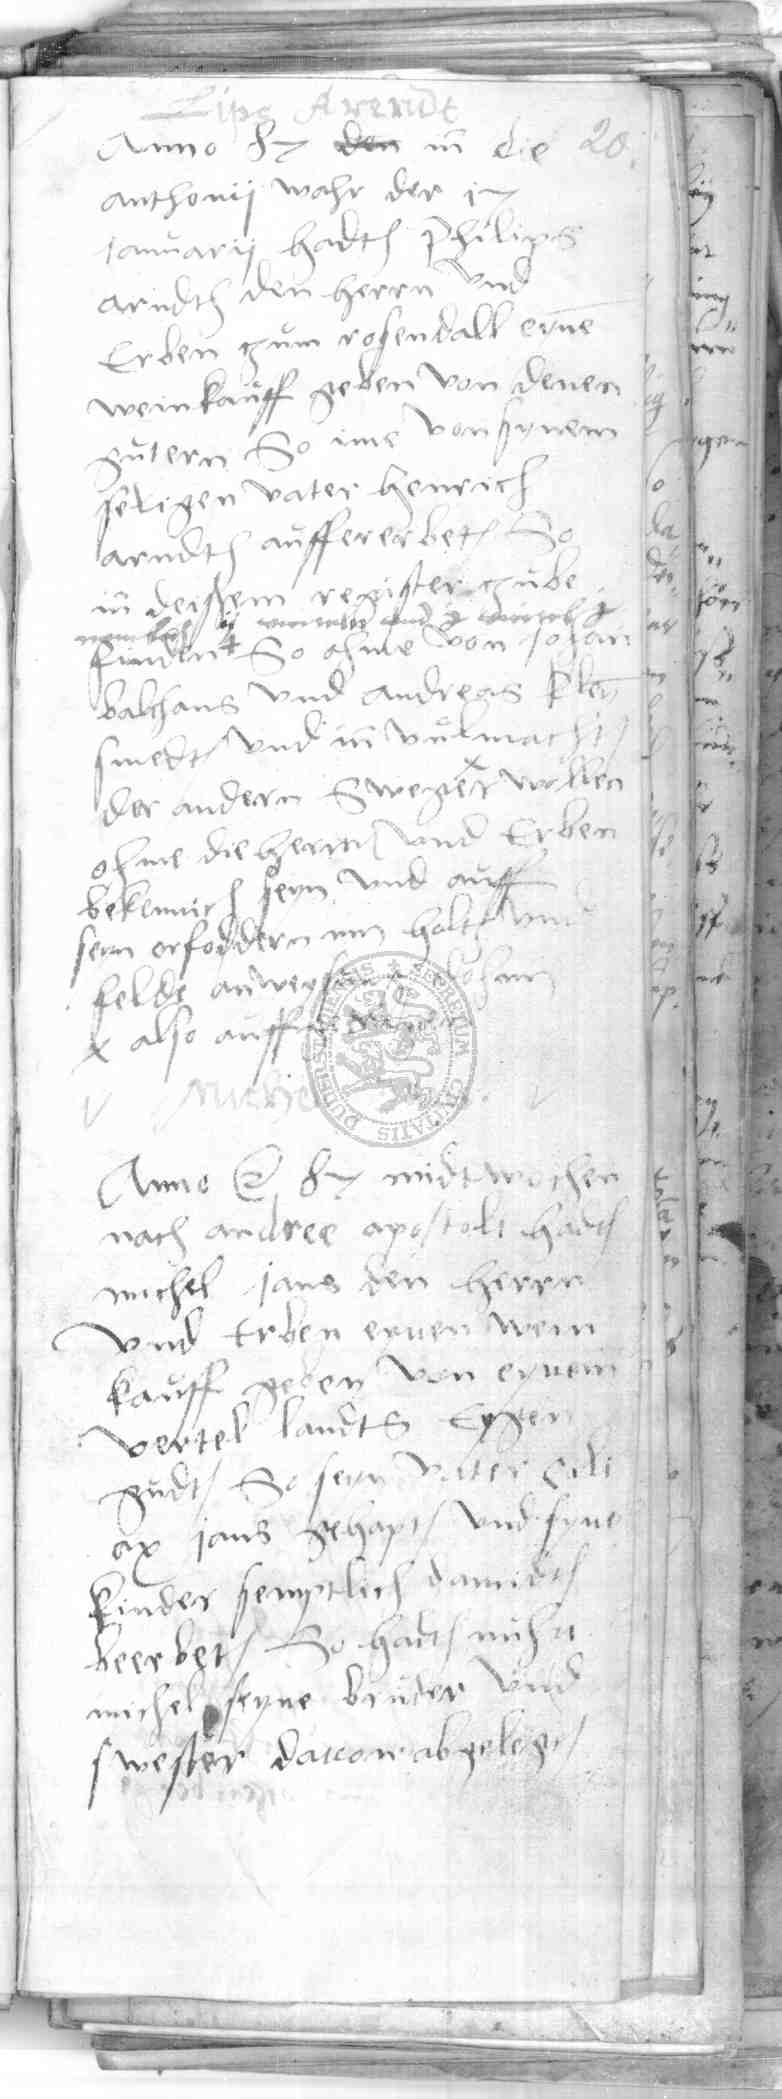 Lips Arendt
20.
Anno 87 den in die
anthonij wahr der 17
januarij hadth Philips
arndth den herrn vnd
Erben zum rosendall eyne
weinkauff geben von denen
gutern So ime von synem
seligen vater henrich
arndth auffererbeth So
in deissem register zube
finden + So ohme von johan
balthaus vnd andreas
smedt vnd in vulmacht
der andern Sweger wollen
ohme die herrn vnd Erben
bekennich seyn vnd auff
seyn erfoddern im holtz vnd
felde anweysung
x also auff
Michel Jans.
Anno 87 midtwochen
nach andree apostoli hadt
michel jans den herrn
vnd Erben eynen wein
kauff geben von eynem
vertel landts Eygen
gudt So seyn vater Cili
ax jans gehapt vnd syne
kinder semptlich damidt
beerbet So hadt nuhn
michel seyne bruder vnd
swester darvon abgelegt
DUDERSTADIENSIS CIVITATIS